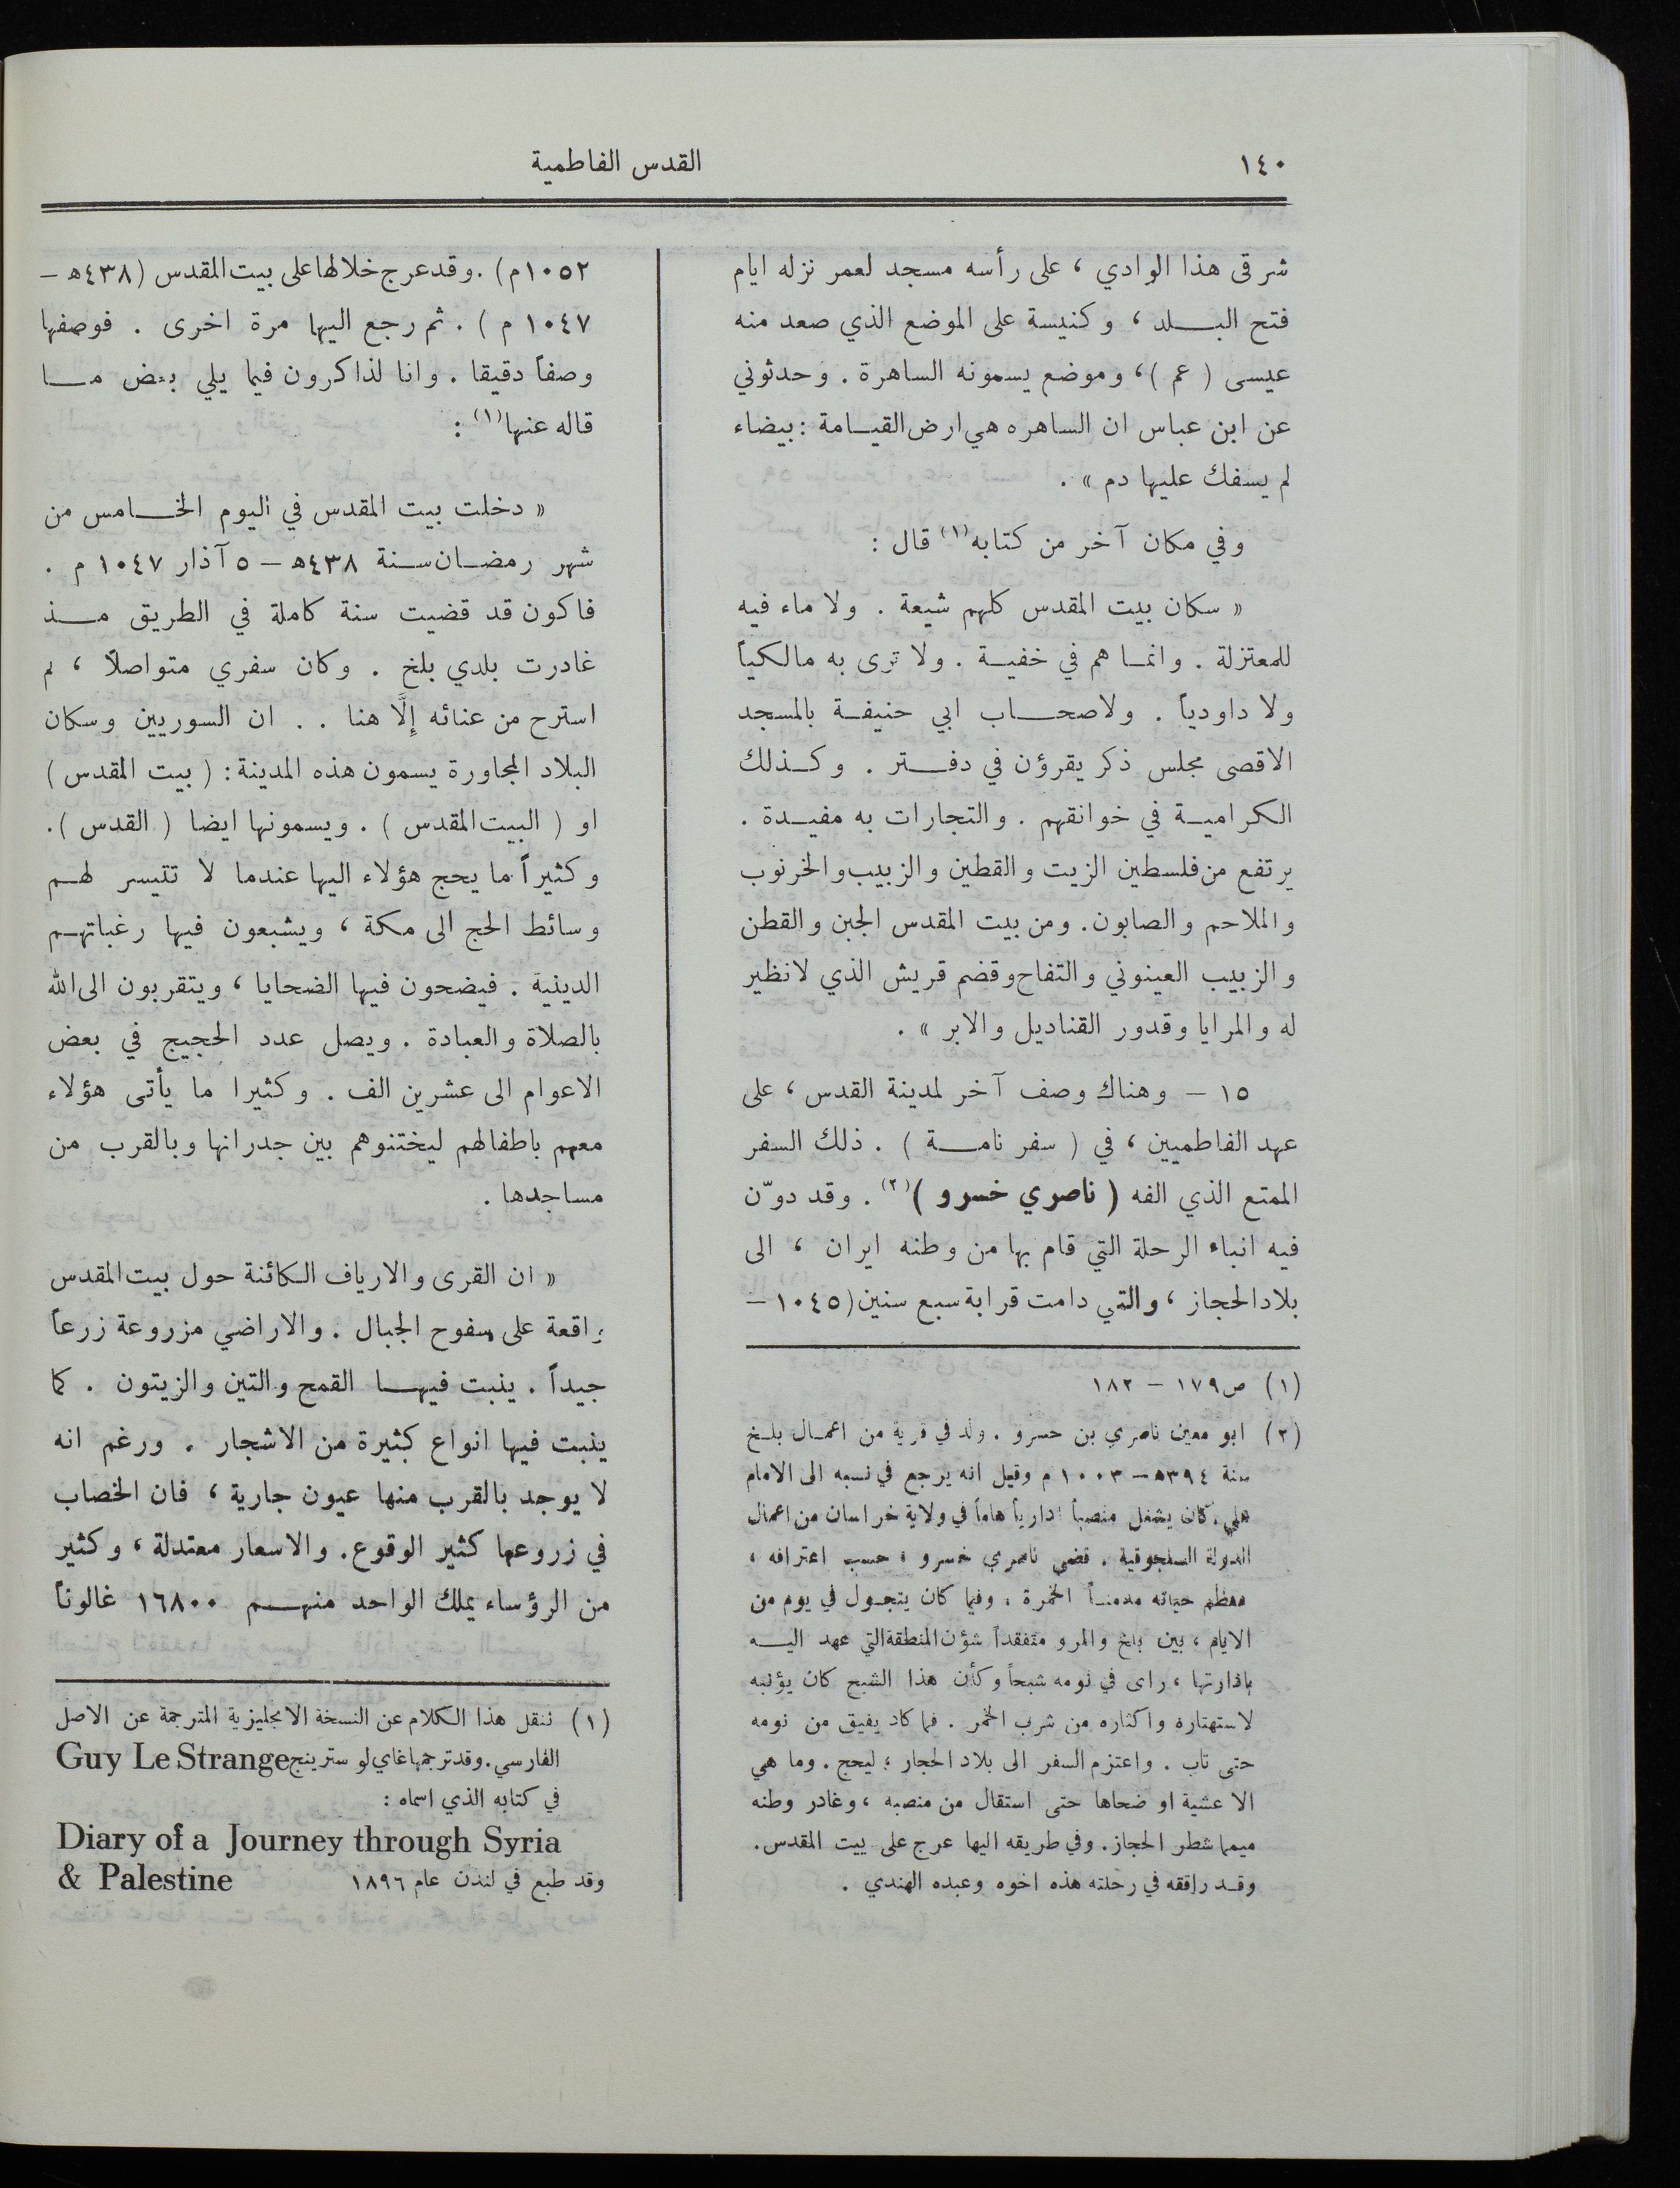 ١٤٠
القدس الفاطمية
شرقي هذا الوادي ، على رأسه مسجد لعمر نزله ايام
فتح البلد ، وكنيسة على الموضع الذي صعد منه
عيسى ( عم ) ، وموضع يسمونه الساهرة . وحدثوني
عن ابن عباس ان الساهره هي ارض القيامة : بيضاء
لم يسفك عليها دم » .
وفي مكان آخر من كتابه (١) قال :
« سكان بيت المقدس كلهم شيعة . ولا ماء فيه
للمعتزلة . وانما هم في خفية . ولا ترى به مالكياً
ولا داودياً . ولاصحاب ابي حنيفة بالمسجد
الاقصى مجلس ذكر يقرؤن في دفتر . وكذلك
الكرامية في خوانقهم . والتجارات به مفيدة .
يرتفع من فلسطين الزيت والقطين والزبيب والخرنوب
والملاحم والصابون . ومن بيت المقدس الجبن والقطن
والزبيب العينوني والتفاح وقضم قريش الذي لا نظير
له والمرايا وقدور القناديل والابر » .
١٥ – وهناك وصف آخر لمدينة القدس ، على
عهد الفاطميين ، في ( سفر نامة ) . ذلك السفر
الممتع الذي الفه ( ناصري خسرو ) (٢) . وقد دوّن
فيه انباء الرحلة التي قام بها من وطنه ايران ، الى
بلاد الحجاز ، والتي دامت قرابة سبع سنين (١٠٤٥ –
(١) ص ١٧٩ – ١٨٢
(٢) ابو معين ناصري بن خسرو . ولد في قرية من اعمال بلخ
سنة ٣٩٤ه – ١٠٠٣ م وقيل انه يرجع في نسبه الى الامام
علي . كان يشغل منصباً ادارياً هاماً في ولاية خراسان من اعمال
الدولة السلجوقية . قضى ناصري خسرو ، حسب اعترافه ،
معظم حياته مدمناً الخمرة . وفيما كان يتجول في يوم من
الايام ، بين بلخ والمرو متفقداً شؤن المنطقة التي عهد اليه
بادارتها ، راى في نومه شبحاً وكأن هذا الشبح كان يؤنبه
لاستهتاره واكثاره من شرب الخمر . فما كاد يفيق من نومه
حتى تاب . واعتزم السفر الى بلاد الحجاز ؛ ليحج . وما هي
الا عشية او ضحاها حتى استقال من منصبه ، وغادر وطنه
ميمما شطر الحجاز . وفي طريقه اليها عرج على بيت المقدس .
وقد رافقه في رحلته هذه اخوه وعبده الهندي .
١٠٥٢م) . وقد عرج خلالها على بيت المقدس (٤٣٨ه –
١٠٤٧ م ) . ثم رجع اليها مرة اخرى . فوصفها
وصفاً دقيقا . وانا لذاكرون فيما يلي بعض ما
قاله عنها (١) :
« دخلت بيت المقدس في اليوم الخامس من
شهر رمضان سنة ٤٣٨ه – ٥ آذار ١٠٤٧ م .
فاكون قد قضيت سنة كاملة في الطريق مذ
غادرت بلدي بلخ . وكان سفري متواصلاً ، لم
استرح من عنائه إلَّا هنا . . ان السوريين وسكان
البلاد المجاورة يسمون هذه المدينة : ( بيت المقدس )
او ( البيت المقدس ) . ويسمونها ايضا ( القدس ) .
وكثيراً ما يحج هؤلاء اليها عندما لا تتيسر لهم
وسائط الحج الى مكة ، ويشبعون فيها رغباتهم
الدينية . فيضحون فيها الضحايا ، ويتقربون الى الله
بالصلاة والعبادة . ويصل عدد الحجيج في بعض
الاعوام الى عشرين الف . وكثيرا ما يأتى هؤلاء
معهم باطفالهم ليختنوهم بين جدرانها وبالقرب من
مساجدها .
« ان القرى والارياف الكائنة حول بيت المقدس
واقعة على سفوح الجبال . والاراضي مزروعة زرعاً
جيداً . ينبت فيها القمح والتين والزيتون . كما
ينبت فيها انواع كثيرة من الاشجار . ورغم انه
لا يوجد بالقرب منها عيون جارية ، فان الخصاب
في زروعها كثير الوقوع . والاسعار معتدلة ، وكثير
من الرؤساء يملك الواحد منهم ١٦٨٠٠ غالوناً
(١) ننقل هذا الكلام عن النسخة الانجليزية المترجمة عن الاصل
الفارسي . وقد ترجمها غاي لو سترينج Guy Le Strange
في كتابه الذي اسماه :
Diary of a Journey through Syria
& Palestine وقد طبع في لندن عام ١٨٩٦